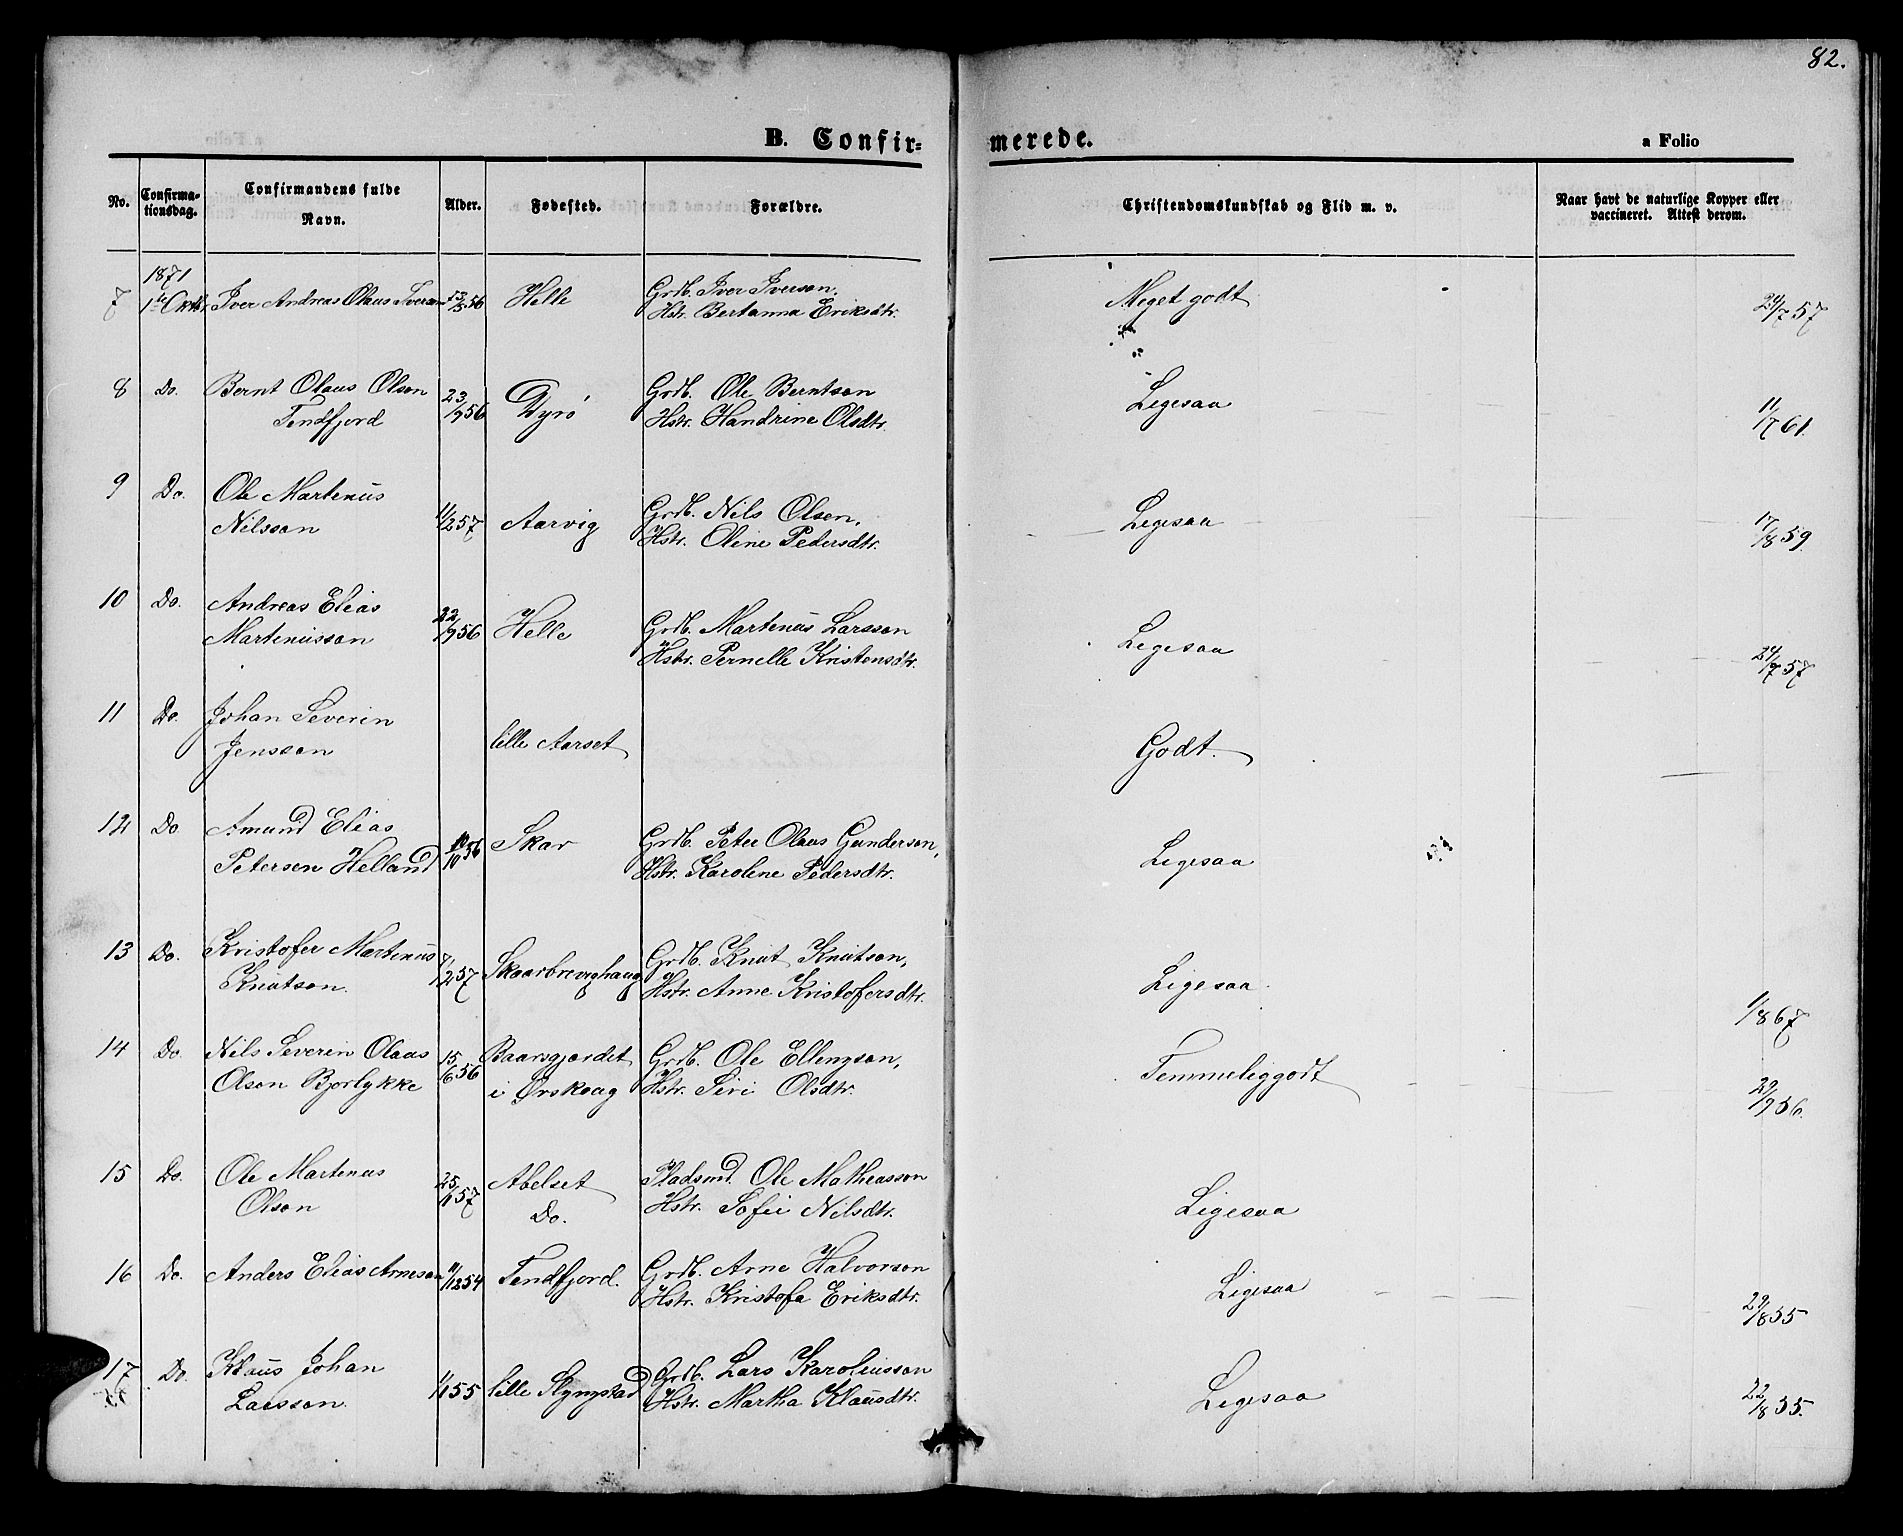 82.
B. Confir=
merede.
a Folio
No.
Confirma-
tionsdag.
Confirmandens fulde
Navn.
Alder.
Fødested.
Forældre.
Christendomskundskab og Flid m. v.
Naar havt de naturlige Kopper eller
vaccineret. Attest derom.
1871
7 1ste Oktbr. Iver Andreas Olaus Iverson 56 Helle Grdb. Iver Iverson, Meget godt 29/7 57
Hstr. Bertanna Eriksdtr.
8 Do. Bernt Olaus Olson 23/9 56 Dyrö Grdb. Ole Berntson Ligesaa 11/7 61.
Tendfjord Hstr. Handrine Olsdtr.
9 Do. Ole Martenus
Nilsson 11/2 57 Aarvig Grdb. Nils Olsen, Ligesaa 17/8 59.
Hstr. Oline Pedersdtr.
10 Do. Andreas Elias
Martenusson 22/9 56 Helle Grdb. Martenus Larsson Ligesaa 24/9 57
Hstr. Pernelle Kristensdtr.
11 Do. Johan Severin
Jensson lille Aarset Godt.
12 Do. Amund Elias Skar Grdb. Peter Olaus Gunderson, Ligesaa
Petersen Helland 10/10 56 Hstr. Karolene Pedersdtr.
13 Do. Kristofer Martinus 7/2 57 Skaarbrevighaug Grdb. Knut Knutson, Ligesaa
Knutson. Hstr. Anne Kristofersdtr. 1/8 67
14 Do. Nils Severin Olaus 15/6 56 Baarsgjærdet Grdb. Ole Ellengson, Temmeliggodt
Olson Bjørlykke i Ørskoug Hstr. Siri Olsdtr. 29/9 56.
15 Do. Ole Martenus 25/1 57 Abelset Pladsmd. Ole Matheasson Ligesaa
Olson Do. Hstr. Sofie Nilsdtr.
16 Do. Anders Elias Arneson 11/12 54 Tendfjord. Grdb. Arne Halvorson Ligesaa 29/8 55
Hstr. Kristofa Eriksdtr.
17 Do. Klaus Johan 1/1 55 lille Slyngstad Grdb. Lars Karoliusson Ligesaa 22/8 55.
Larsson. Hstr. Martha Klausdtr.